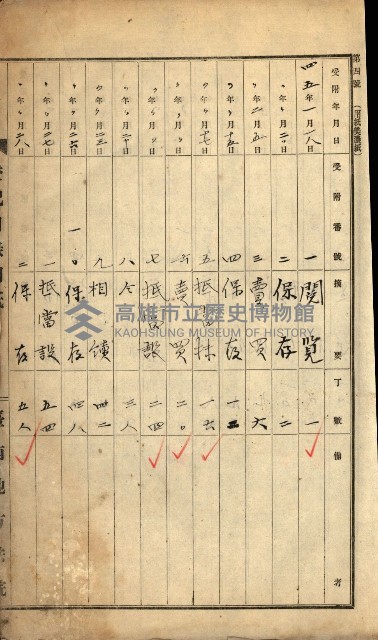 第四號 (用紙美濃紙)
受附年月日 受附番號 摘要 丁數 備考
四五年一月一八日 一 閱覽 一
〃年〃月二〇日 二 保存 二
〃年二月五日 三 賣買 六
〃年〃月十五日 四 保存 一二
〃年〃月十七日 五 抵當抹 一六
〃年〃月〃日 六 賣買 二〇
〃年〃月〃日 七 抵當設 二四
〃年〃月〃日 八 仝 三八
〃年三月二十日 九 相續 四二
〃年〃月二六日 一〇 保存 四八
〃年〃月二七日 一 抵當設 五四
〃年〃月二八日 二 保存 五八
高雄市立歷史博物館
KAOHSIUNG MUSEUM OF HISTORY
臺南地方法院